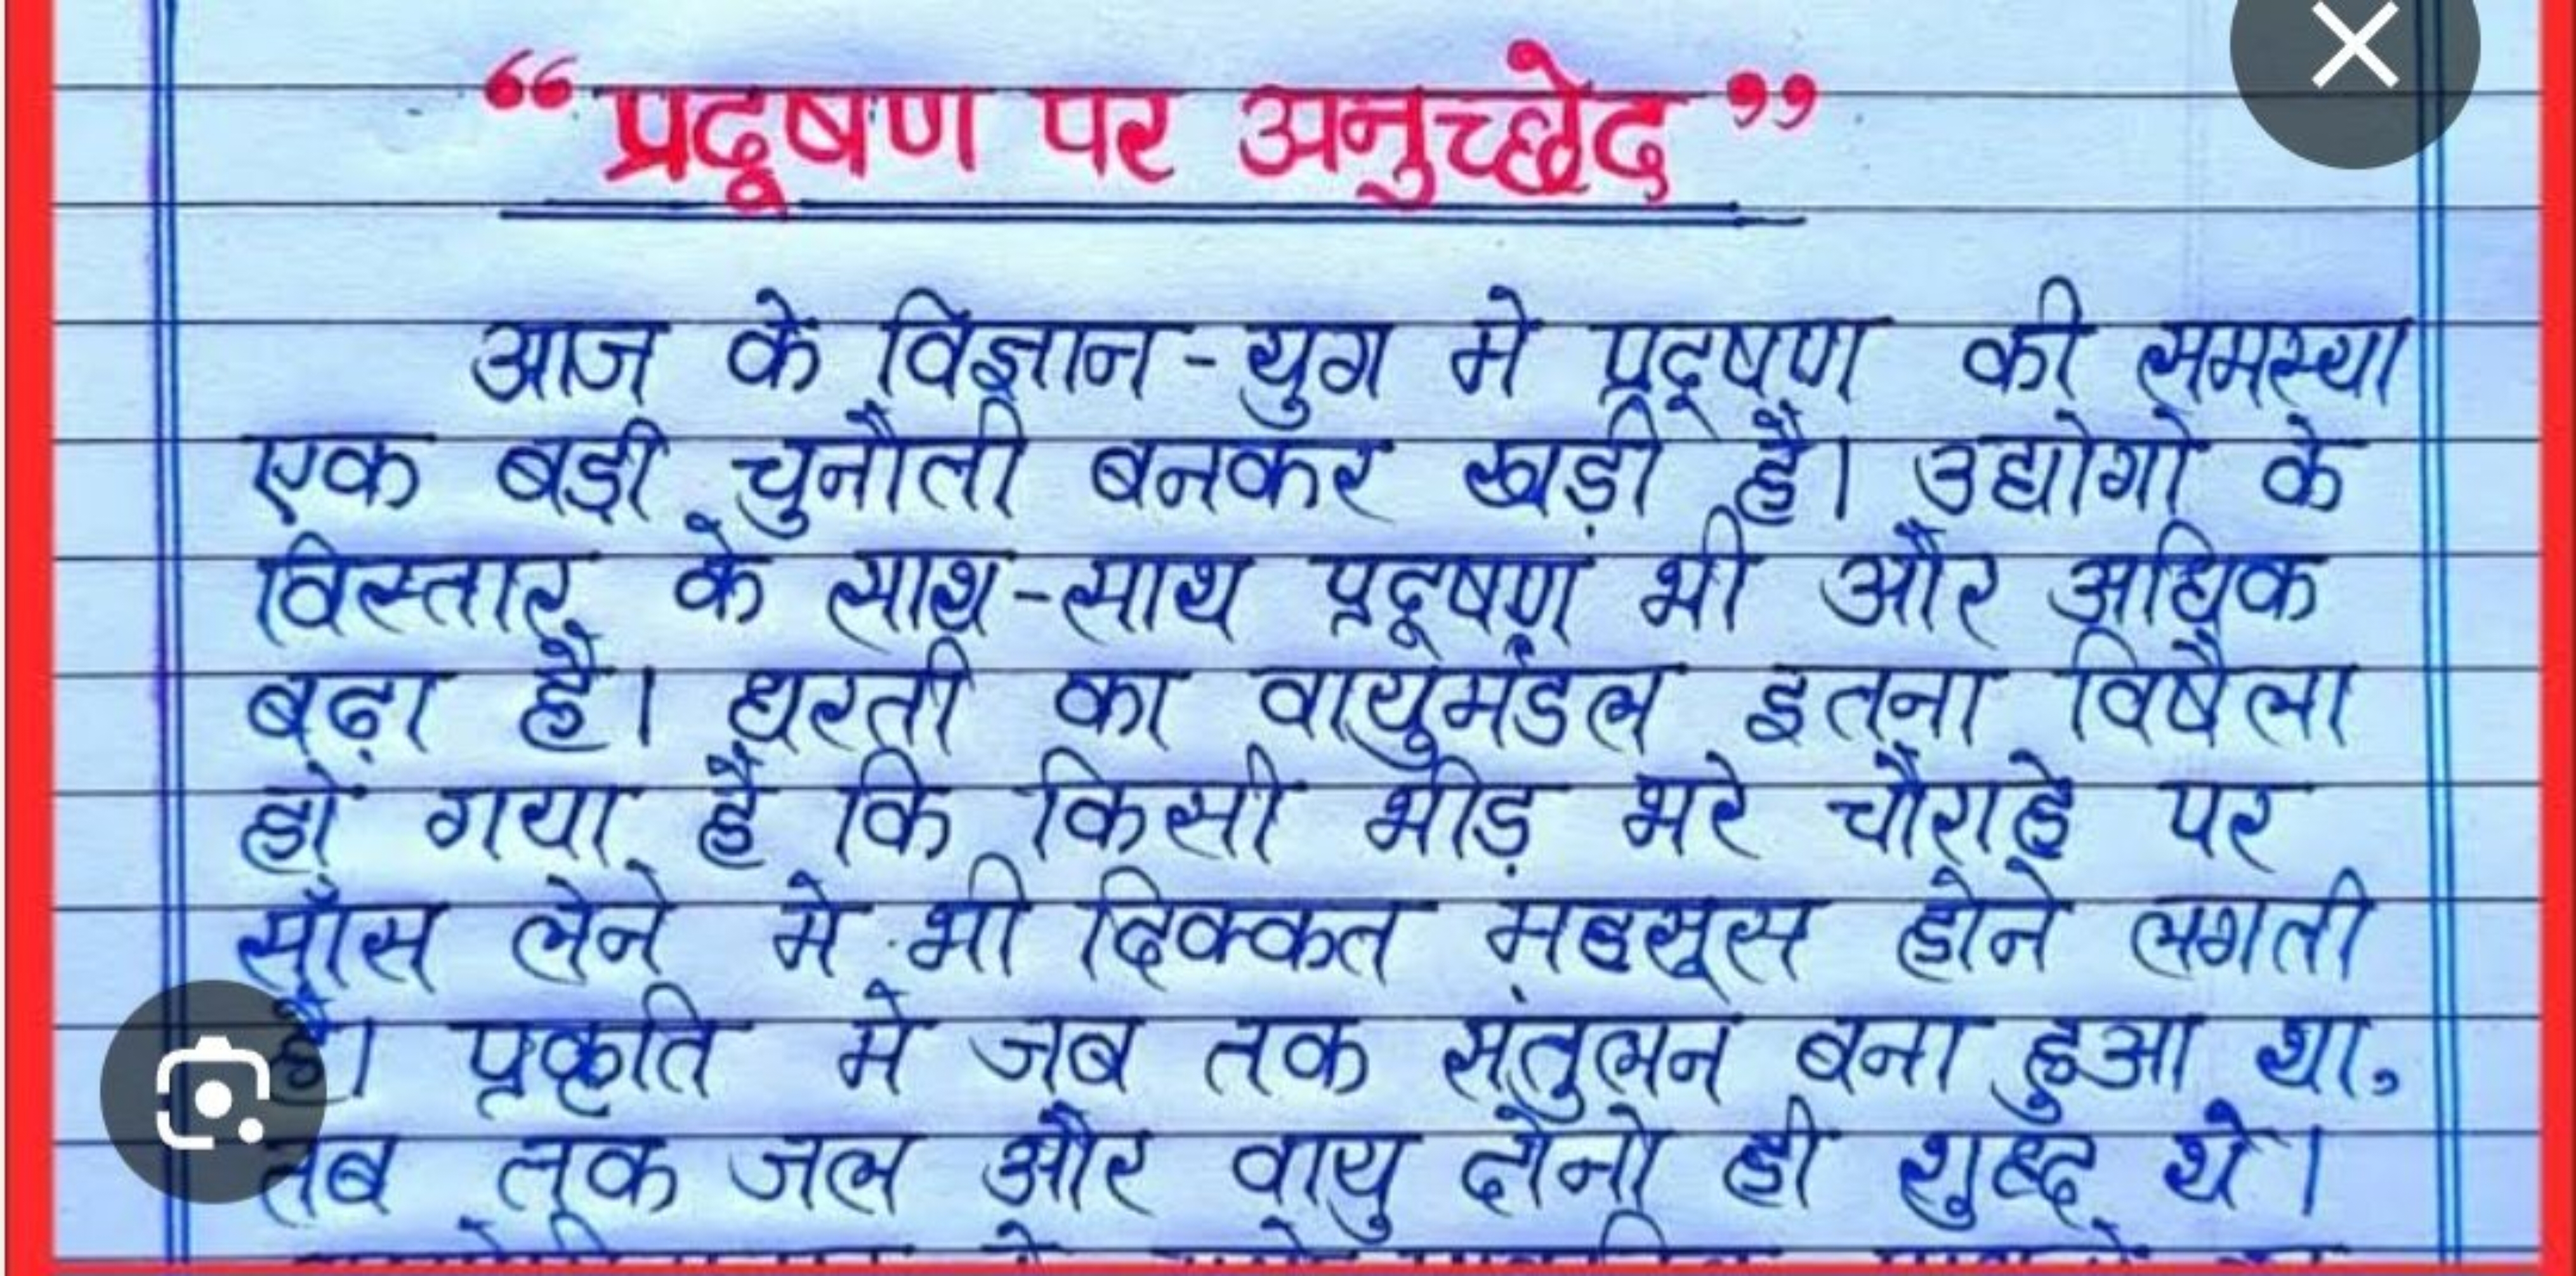 “प्रदूषण पर अनुच्छेद”
आज के विज्ञान-युग मे प्रदूषण की समस्या
एक बड़ी चुनौती बनकर खड़ी है। उद्योगो के
विस्तार के साथ-साथ प्रदूषण भी और अधिक
बढ़ा है। धरती का वायुमंडल इतना विषैला
हो गया है कि किसी भीड़ भरे चौराहे पर
साँस लेने मे भी दिक्कत महसूस होने लगती
है। प्रकृति मे जब तक संतुलन बना हुआ था,
तब तक जल और वायु दोनो ही शुद्ध थे।